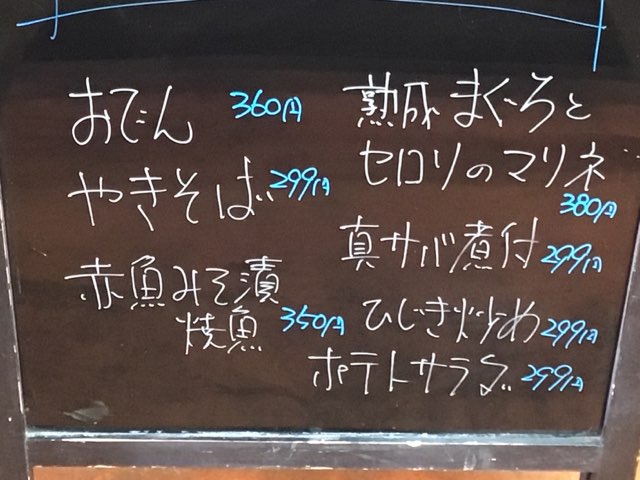 おでん 360円
やきそば 299円
赤魚みそ漬
焼魚 350円
熟成まぐろと
セロリのマリネ
380円
真サバ煮付 299円
ひじき炒め 299円
ポテトサラダ 299円